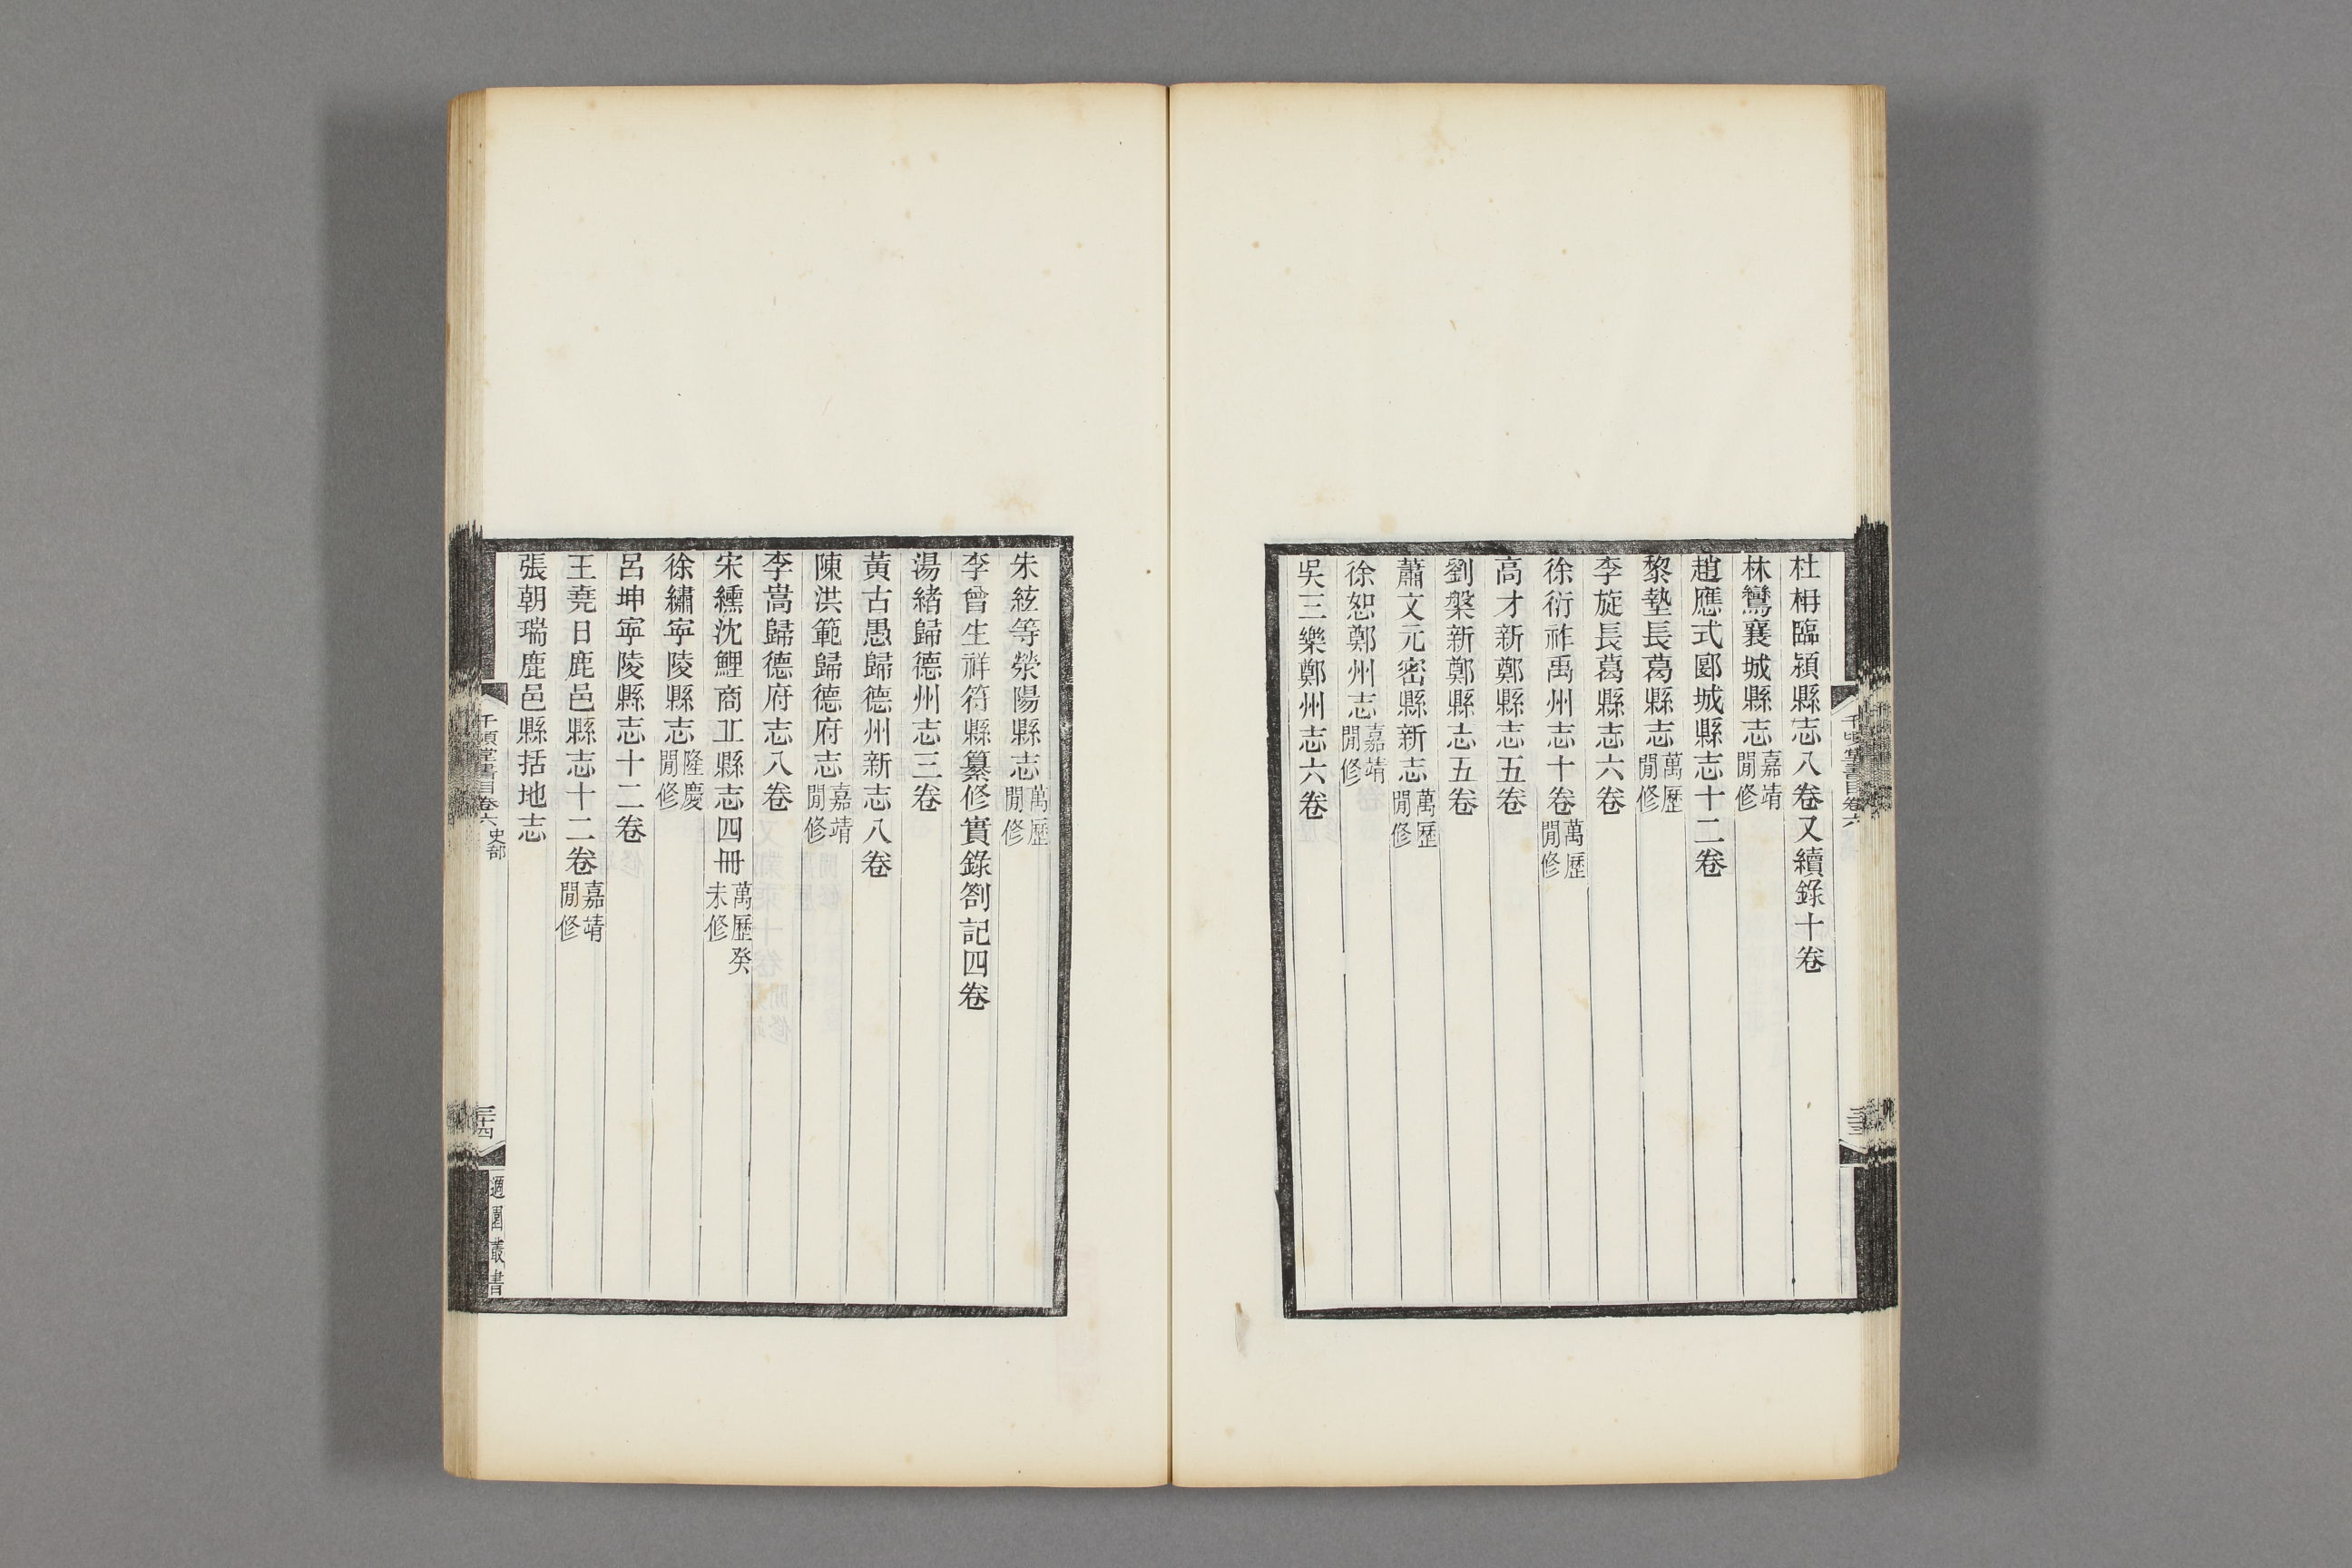 杜枏臨潁縣志八卷又續錄十卷
林鸞襄城縣志嘉靖閒修
趙應式郾城縣志十二卷
黎墊長葛縣志萬歷閒修
李旋長葛縣志六卷
徐衍祚禹州志十卷萬歷閒修
高才新鄭縣志五卷
劉槃新鄭縣志五卷
蕭文元密縣新志萬歷閒修
徐恕鄭州志嘉靖閒修
吳三樂鄭州志六卷
千頃堂書目卷六
三十三
朱絃等滎陽縣志萬歷閒修
李曾生祥符縣纂修實錄劄記四卷
湯緒歸德州志三卷
黃古愚歸德州新志八卷
陳洪範歸德府志嘉靖閒修
李嵩歸德府志八卷
宋纁沈鯉商丠縣志四冊萬歷癸未修
徐繡寜陵縣志隆慶閒修
呂坤寜陵縣志十二卷
王堯日鹿邑縣志十二卷嘉靖閒修
張朝瑞鹿邑縣括地志
千頃堂書目卷六 史部
三十四
適園叢書